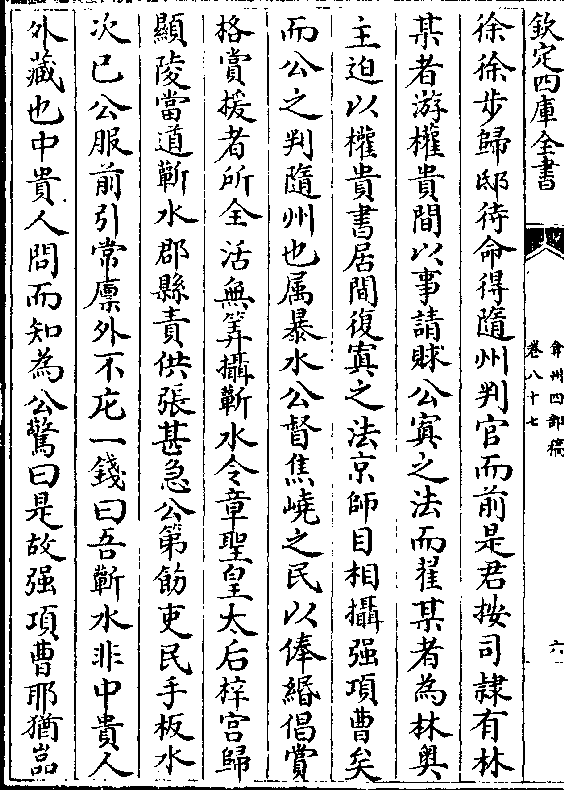 欽定四庫全書
弇州四部稿
卷八十七
六
徐徐步歸邸待命得隨州判官而前是君按司隸有林
某者游權貴間以事請賕公寘之法而翟某者為林奧
主迫以權貴書居間復寘之法京師目相攝强項曹矣
而公之判隨州也属暴水公督焦嶢之民以俸緡倡賞
格賞援者所全活無筭攝蘄水令章聖皇太后梓宫歸
顯陵當道蘄水郡縣責供張甚急公第飭吏民手板水
次已公服前引常廪外不庀一錢曰吾蘄水非中貴人
外藏也中貴人問而知為公驚曰是故强項曹耶猶嵓